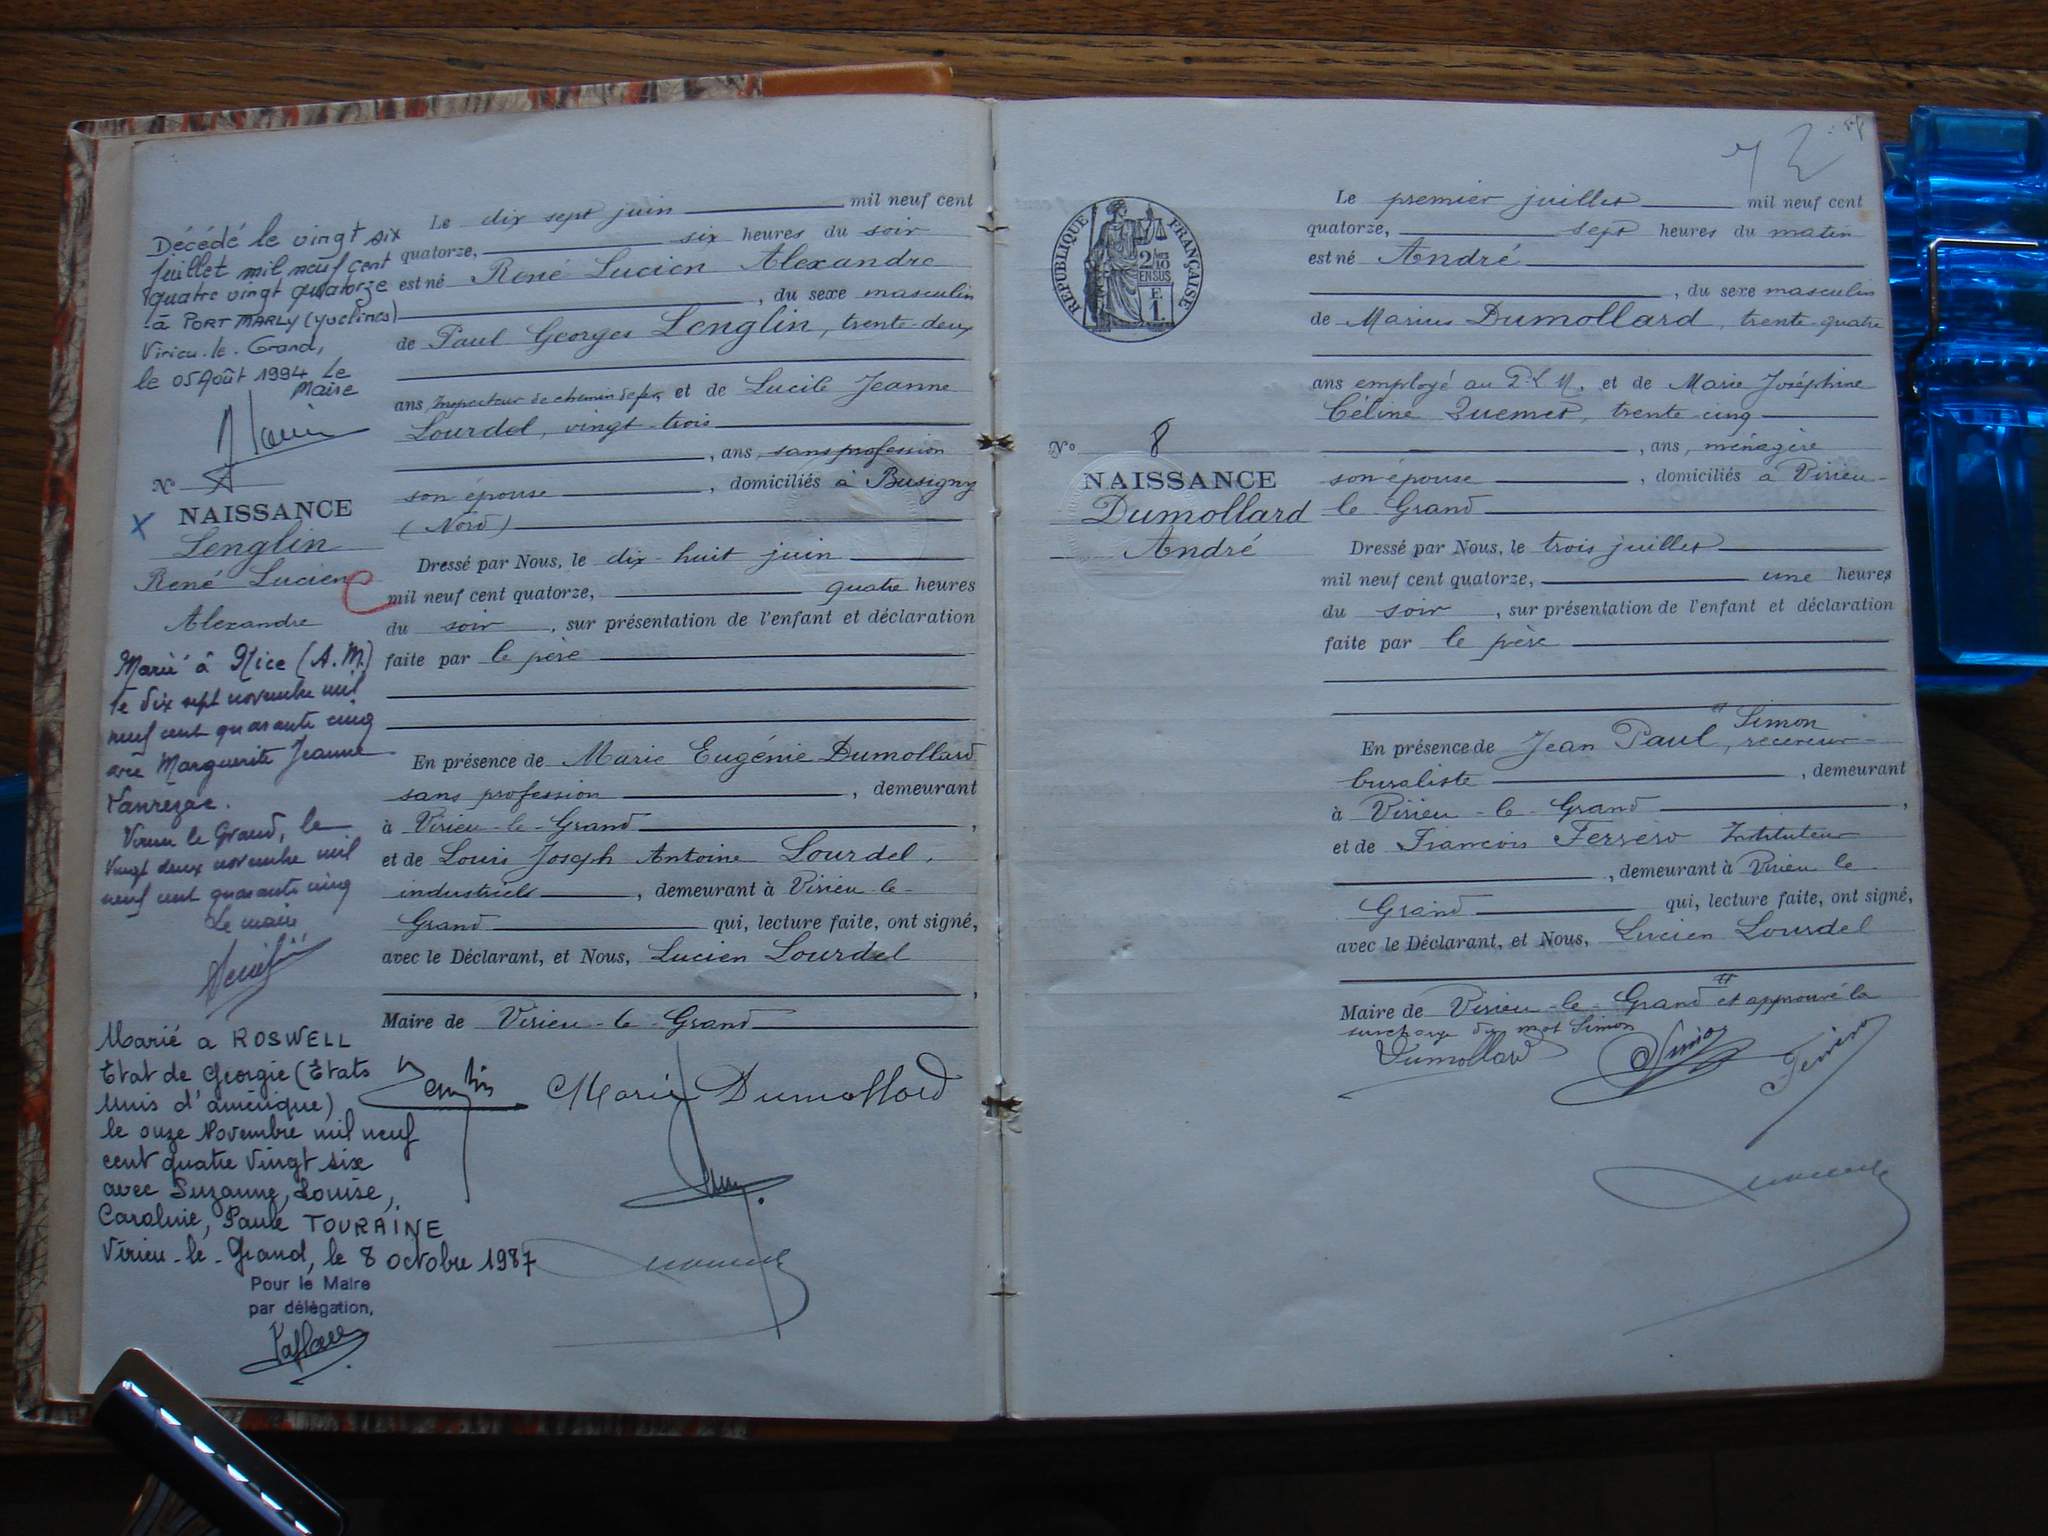 Décédé le vingt six
juillet mil neuf cent
quatre vingt quatorze
à PORT MARLY (Yvelines)
Virieu-le-Grand,
le 05 Août 1994 Le
Maire
N°
NAISSANCE
X
Lenglin
René Lucien
Alexandre
Marié à Nice (A.M.)
le dix sept novembre mil
neuf cent quarante cinq
avec Marguerite Jeanne
Virieu le Grand, le
Vingt deux novembre mil
neuf cent quarante cinq
Le maire
Marié a ROSWELL
Etat de Georgie (Etats
Unis d'amérique)
le onze Novembre mil neuf
cent quatre vingt six
avec Suzanne, Louise,
Caroline, Paule TOURAINE
Virieu-le-Grand, le 8 octobre 1987
Pour le Maire
par délégation,
Le dix sept juin mil neuf cent
quatorze, six heures du soir
est né René Lucien Alexandre
, du sexe masculin
de Paul Georges Lenglin, trente-deux
ans Inspecteur de chemin de fer, et de Lucile Jeanne
Lourdel, vingt-trois
, ans, sans profession
son épouse , domiciliés à Busigny
(Nord)
Dressé par Nous, le dix-huit juin
mil neuf cent quatorze, quatre heures
du soir , sur présentation de l'enfant et déclaration
faite par le père
En présence de Marie Eugénie Dumollard
sans profession , demeurant
à Virieu-le-Grand ,
et de Louis Joseph Antoine Lourdel,
industriel , demeurant à Virieu-le-
Grand qui, lecture faite, ont signé,
avec le Déclarant, et Nous, Lucien Lourdel
,
Maire de Virieu-le-Grand
Marie Dumollard
RÉPUBLIQUE FRANÇAISE
2/10
EN SUS
E.
1.
N° 8
NAISSANCE
Dumollard
André
Le premier juillet mil neuf cent
quatorze, sept heures du matin
est né André
, du sexe masculin
de Marius Dumollard, trente-quatre
ans employé au P.L.M. et de Marie Joséphine
Céline , trente-cinq
, ans, ménagère
son épouse , domiciliés à Virieu-
le Grand
Dressé par Nous, le trois juillet
mil neuf cent quatorze, une heures
du soir , sur présentation de l'enfant et déclaration
faite par le père
En présence de Jean Paul Simon, receveur-
buraliste , demeurant
à Virieu-le-Grand ,
et de François Ferrero Instituteur
, demeurant à Virieu le
Grand qui, lecture faite, ont signé,
avec le Déclarant, et Nous, Lucien Lourdel
Maire de Virieu-le-Grand et approuvé la
surcharge du mot Simon
Dumollard